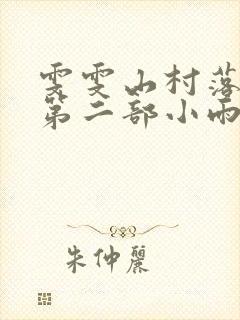 雯雯山村落
第二部小雨
朱仲麗